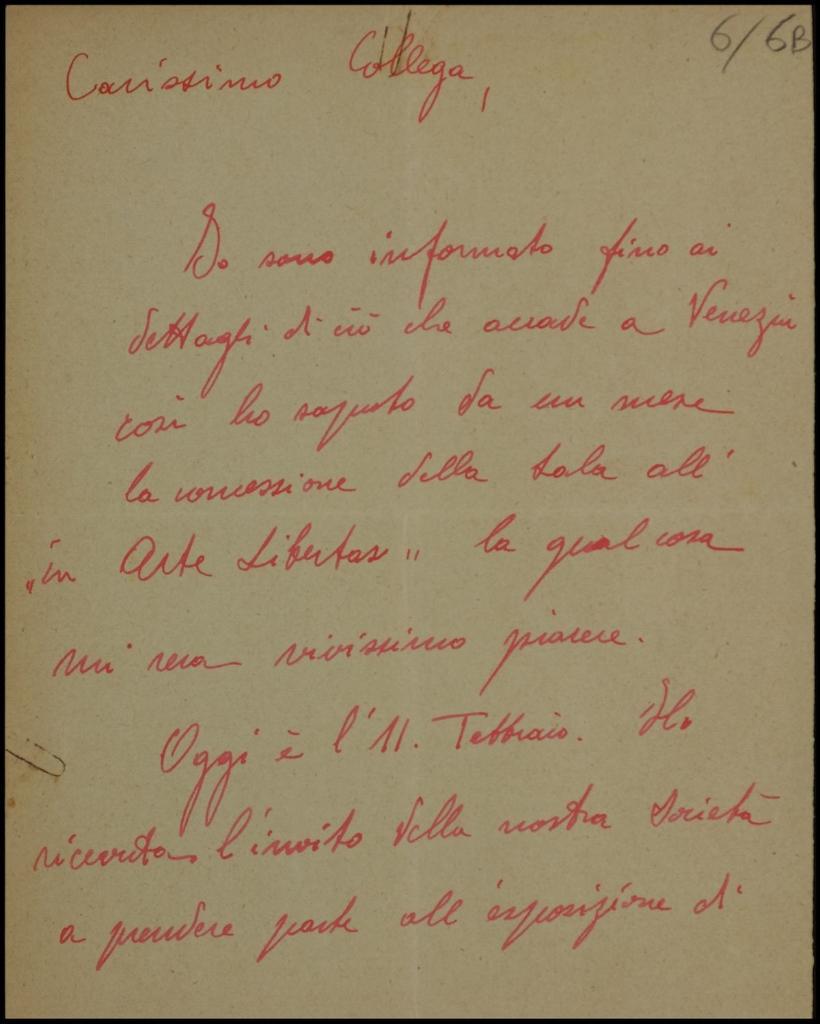 6/6B
Carissimo Collega,
Io sono informato fino ai
dettagli di ciò che accade a Venezia
così ho saputo da un mese
la concessione della sala all'
„in Arte Libertas" la qual cosa
mi reca vivissimo piacere.
Oggi è l'11. Febbraio. Ho
ricevuto l'invito della nostra Società
a prendere parte all'esposizione di